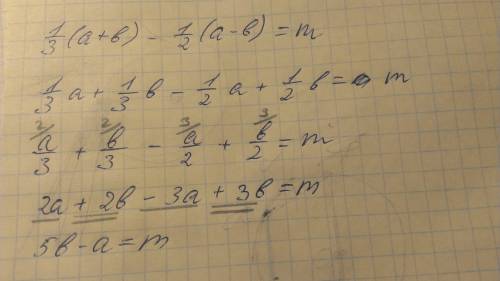 1/3 (a+b) - 1/2 (a-b) = m
1/3 a + 1/3 b - 1/2 a + 1/2 b = m
2/ a/3 + 2/ b/3 - 3/ a/2 + 3/ b/2 = m
2a + 2b - 3a + 3b = m
5b - a = m